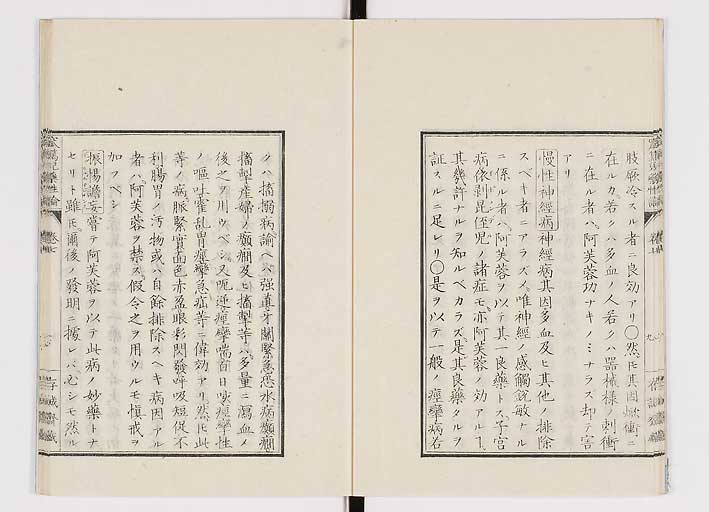 肢厥冷スル者ニ良効アリ〇然𪜈其因焮衝ニ
在ルカ若クハ多血ノ人若クハ器械様ノ刺衝
ニ在ル者ハ阿芙蓉功ナキノミナラズ却テ害
アリ
慢性神經病神經病其因多血及ヒ其他ノ排除
スベキ者ニアラズメ唯神經ノ感觸鋭敏ナル
ニ係ル者ハ阿芙蓉ヲ以テ其一良藥トス子宮
病依剥昆垤児ノ諸症モ亦阿芙蓉ノ効アルヿ
其幾許ナルヲ知ルベカラズ是其良藥タルヲ
証スルニ足レリ〇是ヲ以テ一般ノ痙攣病若
クハ搐搦病諭ヘバ強直牙關緊急恐水病癲癇
搐掣産婦ノ癲癇及ヒ搐掣等ハ多量ニ瀉血ノ
後之ヲ用ウベシ又呃逆痙攣喘百日咳痙攣性
ノ嘔吐霍乱胃痙攣急疝等ニ偉効アリ然𪜈此
等ノ病脈緊實面色赤盈眼彩閃發呼吸短促不
利腸胃ノ汚物或ハ自餘排除スヘキ病因アル
者ハ阿芙蓉ヲ禁ス假令之ヲ用ウルモ慎戒ヲ
加フベシ
振慄譫妄嘗テ阿芙蓉ヲ以テ此病ノ妙藥トナ
セリト雖𪜈爾後ノ發明ニ據レバ必シモ然ル